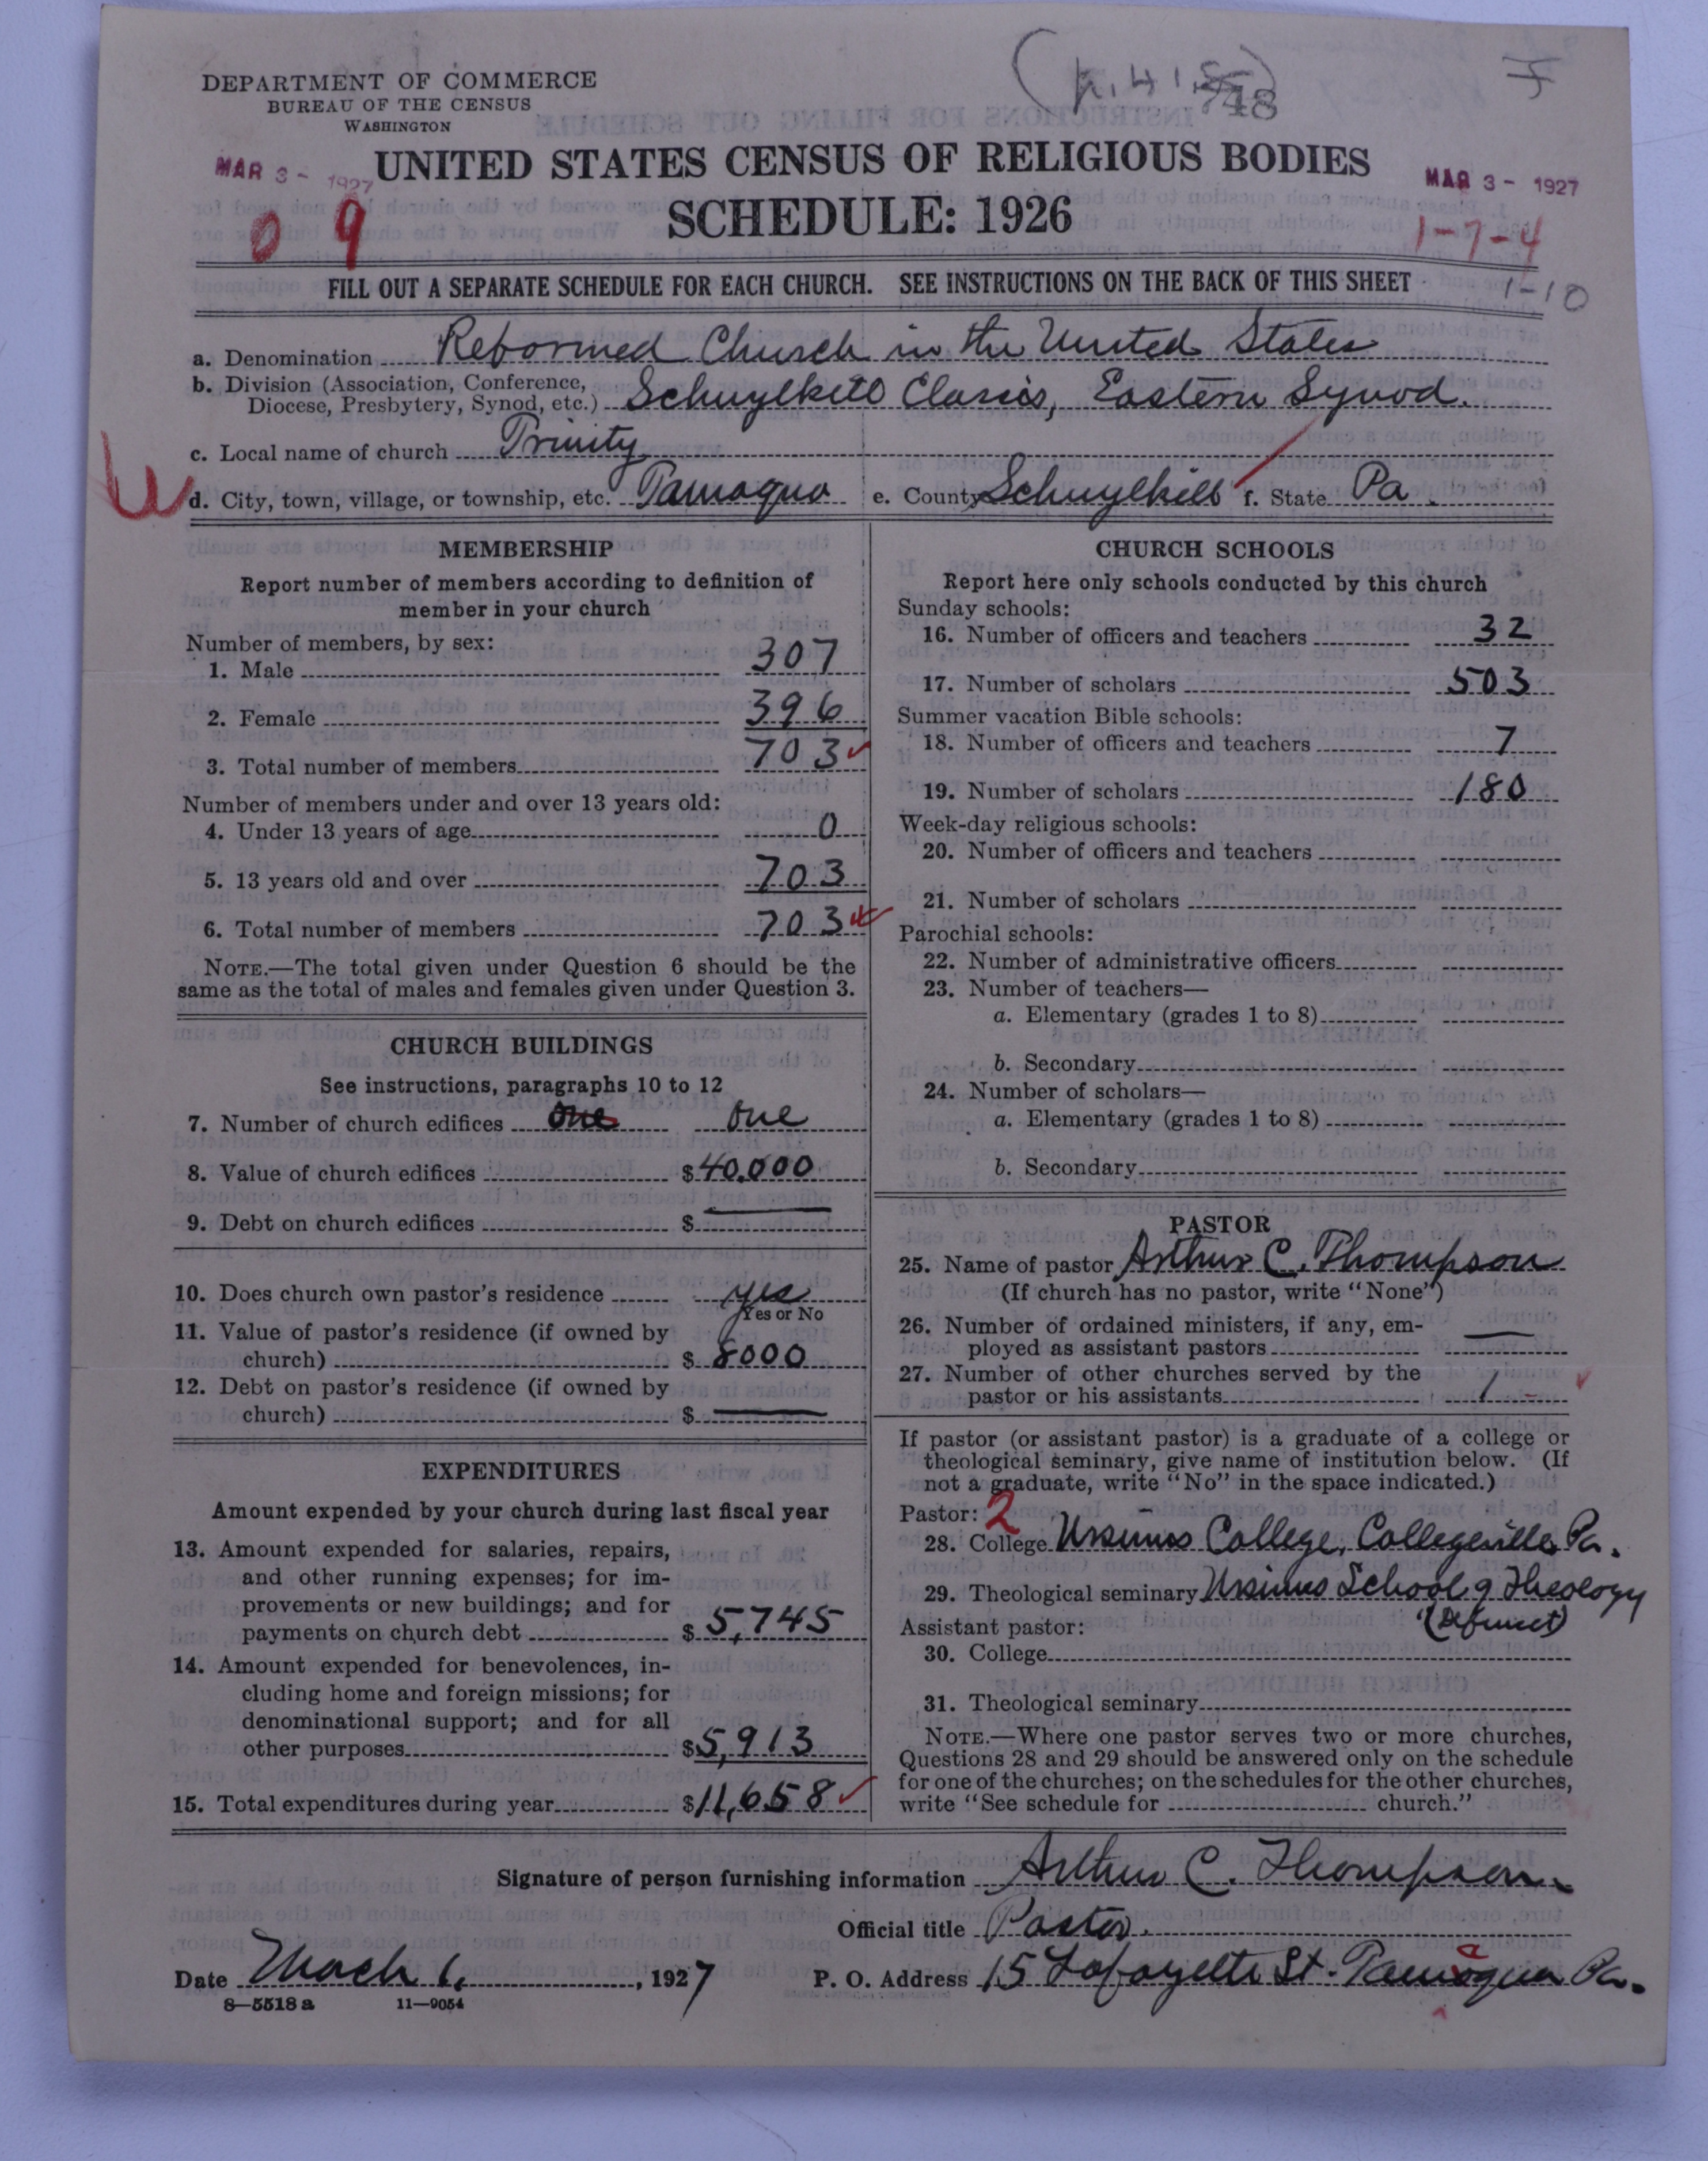 DEPARTMENT OF COMMERCE
BUREAU OF THE CENSUS
WASHINGTON
748
MAR 3 - 1927
UNITED STATES CENSUS OF RELIGIOUS BODIES
MAR 3 - 1927
SCHEDULE: 1926
0 9
1-7-4
FILL OUT A SEPARATE SCHEDULE FOR EACH CHURCH. SEE INSTRUCTIONS ON THE BACK OF THIS SHEET
1-10
a. Denomination Reformed Church in the United States
b. Division (Association, Conference, Diocese, Presbytery, Synod, etc.) Schuylkill Classis, Eastern Synod.
c. Local name of church Trinity
d. City, town, village, or township, etc. Tamaqua e. County Schuylkill f. State Pa.
MEMBERSHIP
Report number of members according to definition of
member in your church
Number of members, by sex:
1. Male 307
2. Female 396
3. Total number of members 703
Number of members under and over 13 years old:
4. Under 13 years of age 0
5. 13 years old and over 703
6. Total number of members 703
NOTE.—The total given under Question 6 should be the
same as the total of males and females given under Question 3.
CHURCH BUILDINGS
See instructions, paragraphs 10 to 12
7. Number of church edifices one one
8. Value of church edifices $40,000
9. Debt on church edifices $
10. Does church own pastor's residence yes
Yes or No
11. Value of pastor's residence (if owned by
church) $ 8000
12. Debt on pastor's residence (if owned by
church) $ —
EXPENDITURES
Amount expended by your church during last fiscal year
13. Amount expended for salaries, repairs,
and other running expenses; for im-
provements or new buildings; and for
payments on church debt $ 5,745
14. Amount expended for benevolences, in-
cluding home and foreign missions; for
denominational support; and for all
other purposes $5,913
15. Total expenditures during year $11,658
CHURCH SCHOOLS
Report here only schools conducted by this church
Sunday schools:
16. Number of officers and teachers 32
17. Number of scholars 503
Summer vacation Bible schools:
18. Number of officers and teachers 7
19. Number of scholars 180
Week-day religious schools:
20. Number of officers and teachers
21. Number of scholars
Parochial schools:
22. Number of administrative officers
23. Number of teachers—
a. Elementary (grades 1 to 8)
b. Secondary
24. Number of scholars—
a. Elementary (grades 1 to 8)
b. Secondary
PASTOR
25. Name of pastor Arthur C. Thompson
(If church has no pastor, write "None")
26. Number of ordained ministers, if any, em-
ployed as assistant pastors —
27. Number of other churches served by the
pastor or his assistants 1
If pastor (or assistant pastor) is a graduate of a college or
theological seminary, give name of institution below. (If
not a graduate, write "No" in the space indicated.)
Pastor: 2
28. College Ursinus College, Collegeville Pa.
29. Theological seminary Ursinus School of Theology
(Defunct)
Assistant pastor:
30. College
31. Theological seminary
NOTE.—Where one pastor serves two or more churches,
Questions 28 and 29 should be answered only on the schedule
for one of the churches; on the schedules for the other churches,
write "See schedule for church."
Signature of person furnishing information Arthur C. Thompson
Official title Pastor.
Date March 1, 1927 P. O. Address 15 Lafayette St. Tamaqua Pa.
8—5518 a 11—9054